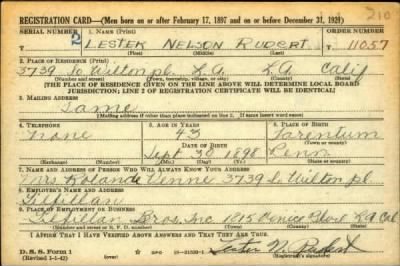 210
REGISTRATION CARD—(Men born on or after February 17, 1897 and on or before December 31, 1921)
SERIAL NUMBER 1. NAME (Print) ORDER NUMBER
2 LESTER NELSON RUPERT 11057
(First) (Middle) (Last)
2. PLACE OF RESIDENCE (Print)
3739 So Wilton pl L.A. L.A. Calif
(Number and street) (Town, township, village, or city) (County) (State)
[THE PLACE OF RESIDENCE GIVEN ON THE LINE ABOVE WILL DETERMINE LOCAL BOARD
JURISDICTION; LINE 2 OF REGISTRATION CERTIFICATE WILL BE IDENTICAL]
3. MAILING ADDRESS
Same
[Mailing address if other than place indicated on line 2. If same insert word same]
4. TELEPHONE 5. AGE IN YEARS 6. PLACE OF BIRTH
None 43 Tarentum
DATE OF BIRTH (Town or county)
Sept 30 1898 Penn
(Exchange) (Number) (Mo.) (Day) (Yr.) (State or country)
7. NAME AND ADDRESS OF PERSON WHO WILL ALWAYS KNOW YOUR ADDRESS
Mrs Roland Venne 3739 So Wilton pl
8. EMPLOYER'S NAME AND ADDRESS
Gilfillan
9. PLACE OF EMPLOYMENT OR BUSINESS
Gilfillan Bros. Inc 1815 Venice Blvd LA Cal
(Number and street or R. F. D. number) (Town) (County) (State)
I AFFIRM THAT I HAVE VERIFIED ABOVE ANSWERS AND THAT THEY ARE TRUE.
D. S. S. Form 1
(Revised 1-1-42) (over) GPO Lester N. Rupert
(Registrant's signature)